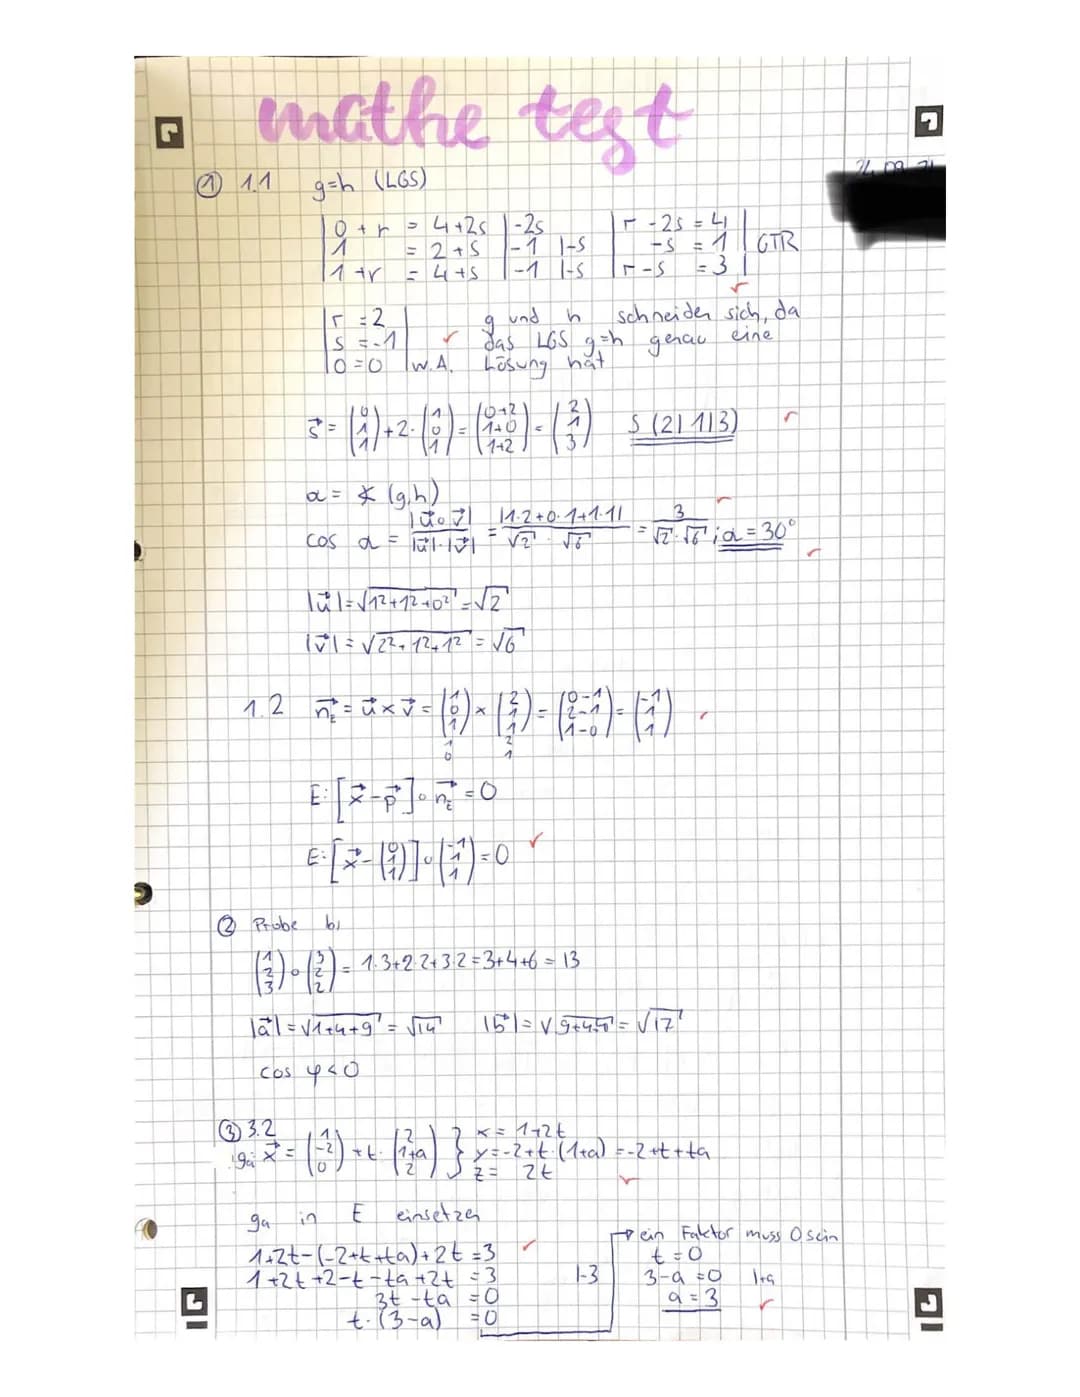 mathe test
24.09.21
① 1.1 g=h (LGS)
| 0 + r = 4+2s | -2s | r - 2s = 4 |
| 1 = 2 + s | -1 |-s | -s = 1 | GTR
| 1 + r = 4 + s | -1 |-s | r - s = 3 |
| r = 2 | g und h schneiden sich, da
| s = -1 | das LGS g=h genau eine
| 0 = 0 | w.A. Lösung hat
s⃗ = (0 1 1) + 2·(1 0 1) = (0+2 1+0 1+2) = (2 1 3) S (2|1|3)
α = ∡ (g,h)
cos α = |u⃗∘v⃗| / |u⃗|·|v⃗| = |1·2+0·1+1·1| / √2 · √6 = 3 / √2·√6 ; α = 30°
|u⃗| = √1²+1²+0² = √2
|v⃗| = √2²+1²+1² = √6
1.2 n⃗_E = u⃗ × v⃗ = (1 0 1) × (2 1 1) = (0-1 2-1 1-0) = (-1 1 1)
1 2
0 1
E: [x⃗ - p⃗] ∘ n⃗_E = 0
E: [x⃗ - (0 1 1)] ∘ (-1 1 1) = 0
② Probe b)
(1 2 3) ∘ (3 2 2) = 1·3+2·2+3·2 = 3+4+6 = 13
|a⃗| = √1+4+9 = √14 |b⃗| = √9+4+4 = √17
cos φ < 0
③ 3.2
ga: x⃗ = (1 -2 0) + t · (2 1+a 2) } x = 1+2t
y = -2+t·(1+a) = -2+t+ta
z = 2t
ga in E einsetzen
1+2t-(-2+t+ta)+2t = 3
1+2t+2-t-ta+2t = 3 |-3
3t - ta = 0
t·(3-a) = 0
→ ein Faktor muss 0 sein
t = 0
3-a = 0 |+a
a = 3